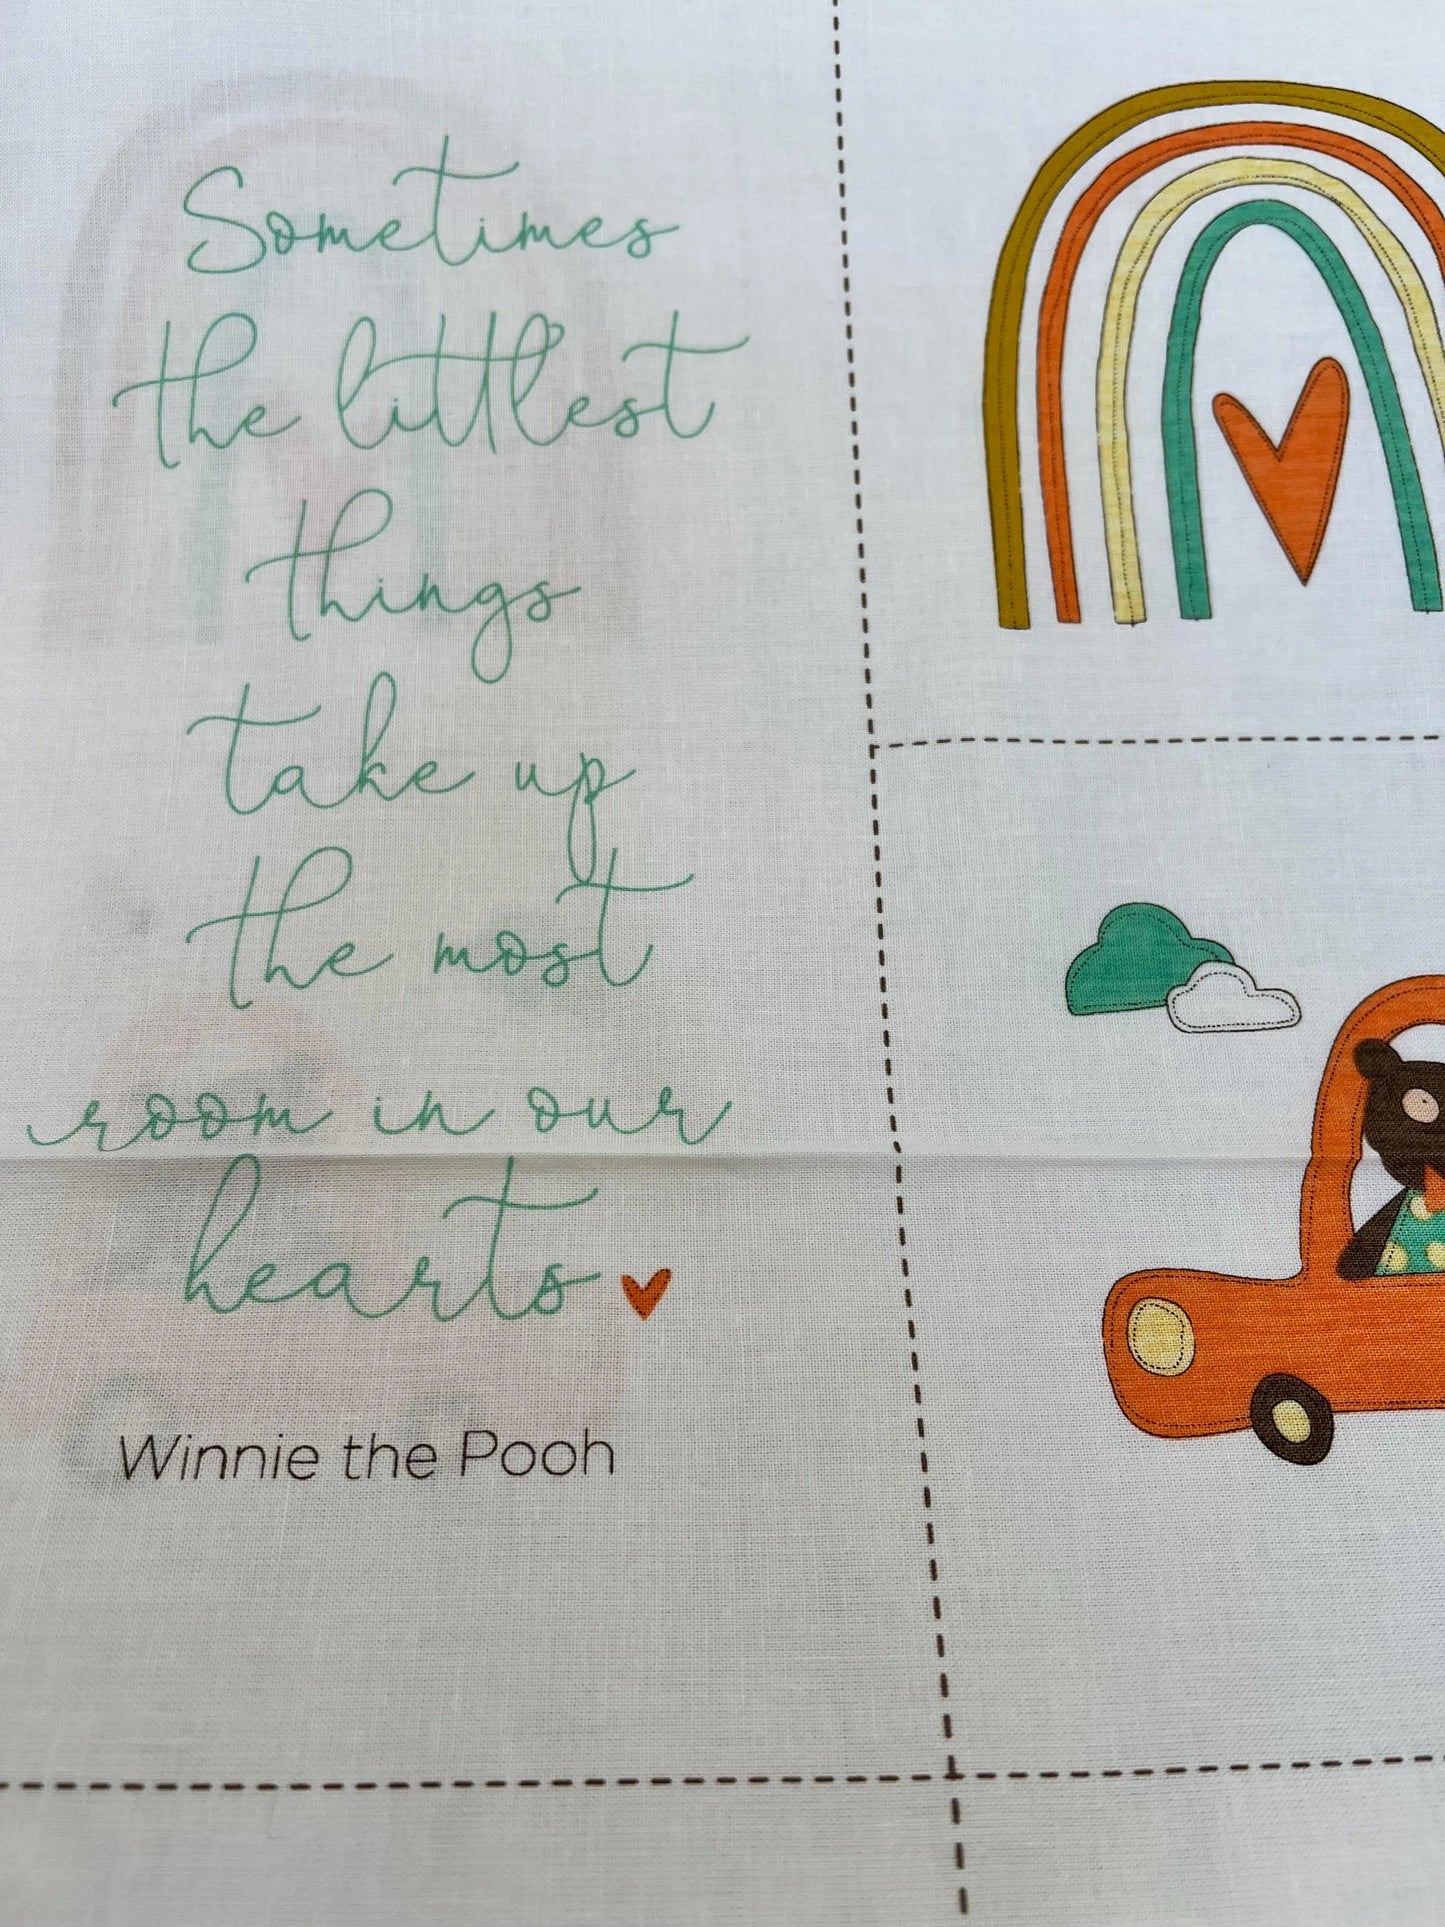 Sometimes
the littlest
things
take up
the most
room in our
hearts
Winnie the Pooh